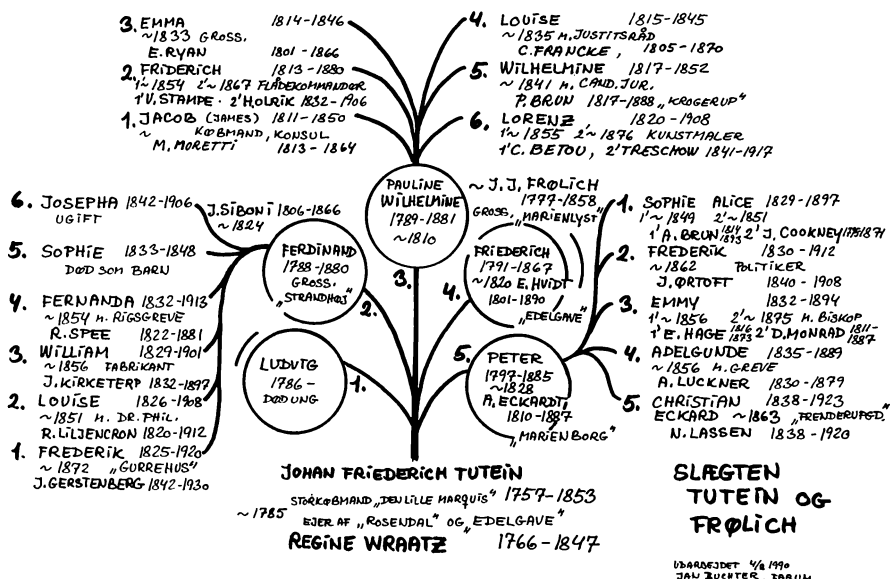 3. EMMA 1814-1846
~1833 GROSS.
E.RYAN 1801-1866
2. FRIDERICH 1813-1880
1'~1854 2'~1867 FLÅDEKOMMANDØR
1'V.STAMPE. 2'HOLRIK 1832-1906
1. JACOB (JAMES) 1811-1850
~ KØBMAND, KONSUL
M. MORETTI 1813-1864
4. LOUISE 1815-1845
~1835 M. JUSTITSRÅD
C.FRANCKE, 1805-1870
5. WILHELMINE 1817-1852
~1841 M. CAND. JUR.
P.BRUN 1817-1888 „KROGERUP"
6. LORENZ 1820-1908
1'~1855 2'~1876 KUNSTMALER
1'C. BETOU, 2'TRESCHOW 1841-1917
PAULINE
WILHELMINE
1789-1881
~1810
3.
~ J.J. FRØLICH
1777-1858
GROSS. „MARIENLYST"
6. JOSEPHA 1842-1906
UGIFT
5. SOPHIE 1833-1848
DØD SOM BARN
4. FERNANDA 1832-1913
~1854 M. RIGSGREVE
R. SPEE 1822-1881
3. WILLIAM 1829-1901
~1856 FABRIKANT
J.KIRKETERP 1832-1897
2. LOUISE 1826-1908
~1851 M. DR. PHIL.
R.LILJENCRON 1820-1912
1. FREDERIK 1825-1920
~1872 „GURREHUS"
J.GERSTENBERG 1842-1930
J.SIBONI 1806-1866
~1824
FERDINAND
1788-1880
GROSS.
„STRANDHØJ"
2.
LUDVIG
1786-
DØD UNG
1.
FRIEDERICH
1791-1867
~1820 E.HVIDT
1801-1890
„EDELGAVE"
4.
PETER
1797-1885
~1828
A.ECKARDT,
1810-1887
„MARIENBORG"
5.
1. SOPHIE ALICE 1829-1897
1'~1849 2'~1851
1'A.BRUN 1814 1873 2'J. COOKNEY 1775 1871
2. FREDERIK 1830-1912
~1862 POLITIKER
J.ØRTOFT 1840-1908
3. EMMY 1832-1894
1'~1856 2'~1875 M. BISKOP
1'E.HAGE 1816 1873 2'D.MONRAD 1811-1887
4. ADELGUNDE 1835-1889
~1856 M.GREVE
A.LUCKNER 1830-1879
5. CHRISTIAN 1838-1923
ECKARD ~1863 „FRENDERUPGD."
N.LASSEN 1838-1920
JOHAN FRIEDERICH TUTEIN
STORKØBMAND „DEN LILLE MARQUIS" 1757-1853
~1785
EJER AF „ROSENDAL" OG „EDELGAVE"
REGINE WRAATZ 1766-1847
SLÆGTEN
TUTEIN OG
FRØLICH
UDARBEJDET 4/2 1990
JAN BUCHTER, FARUM